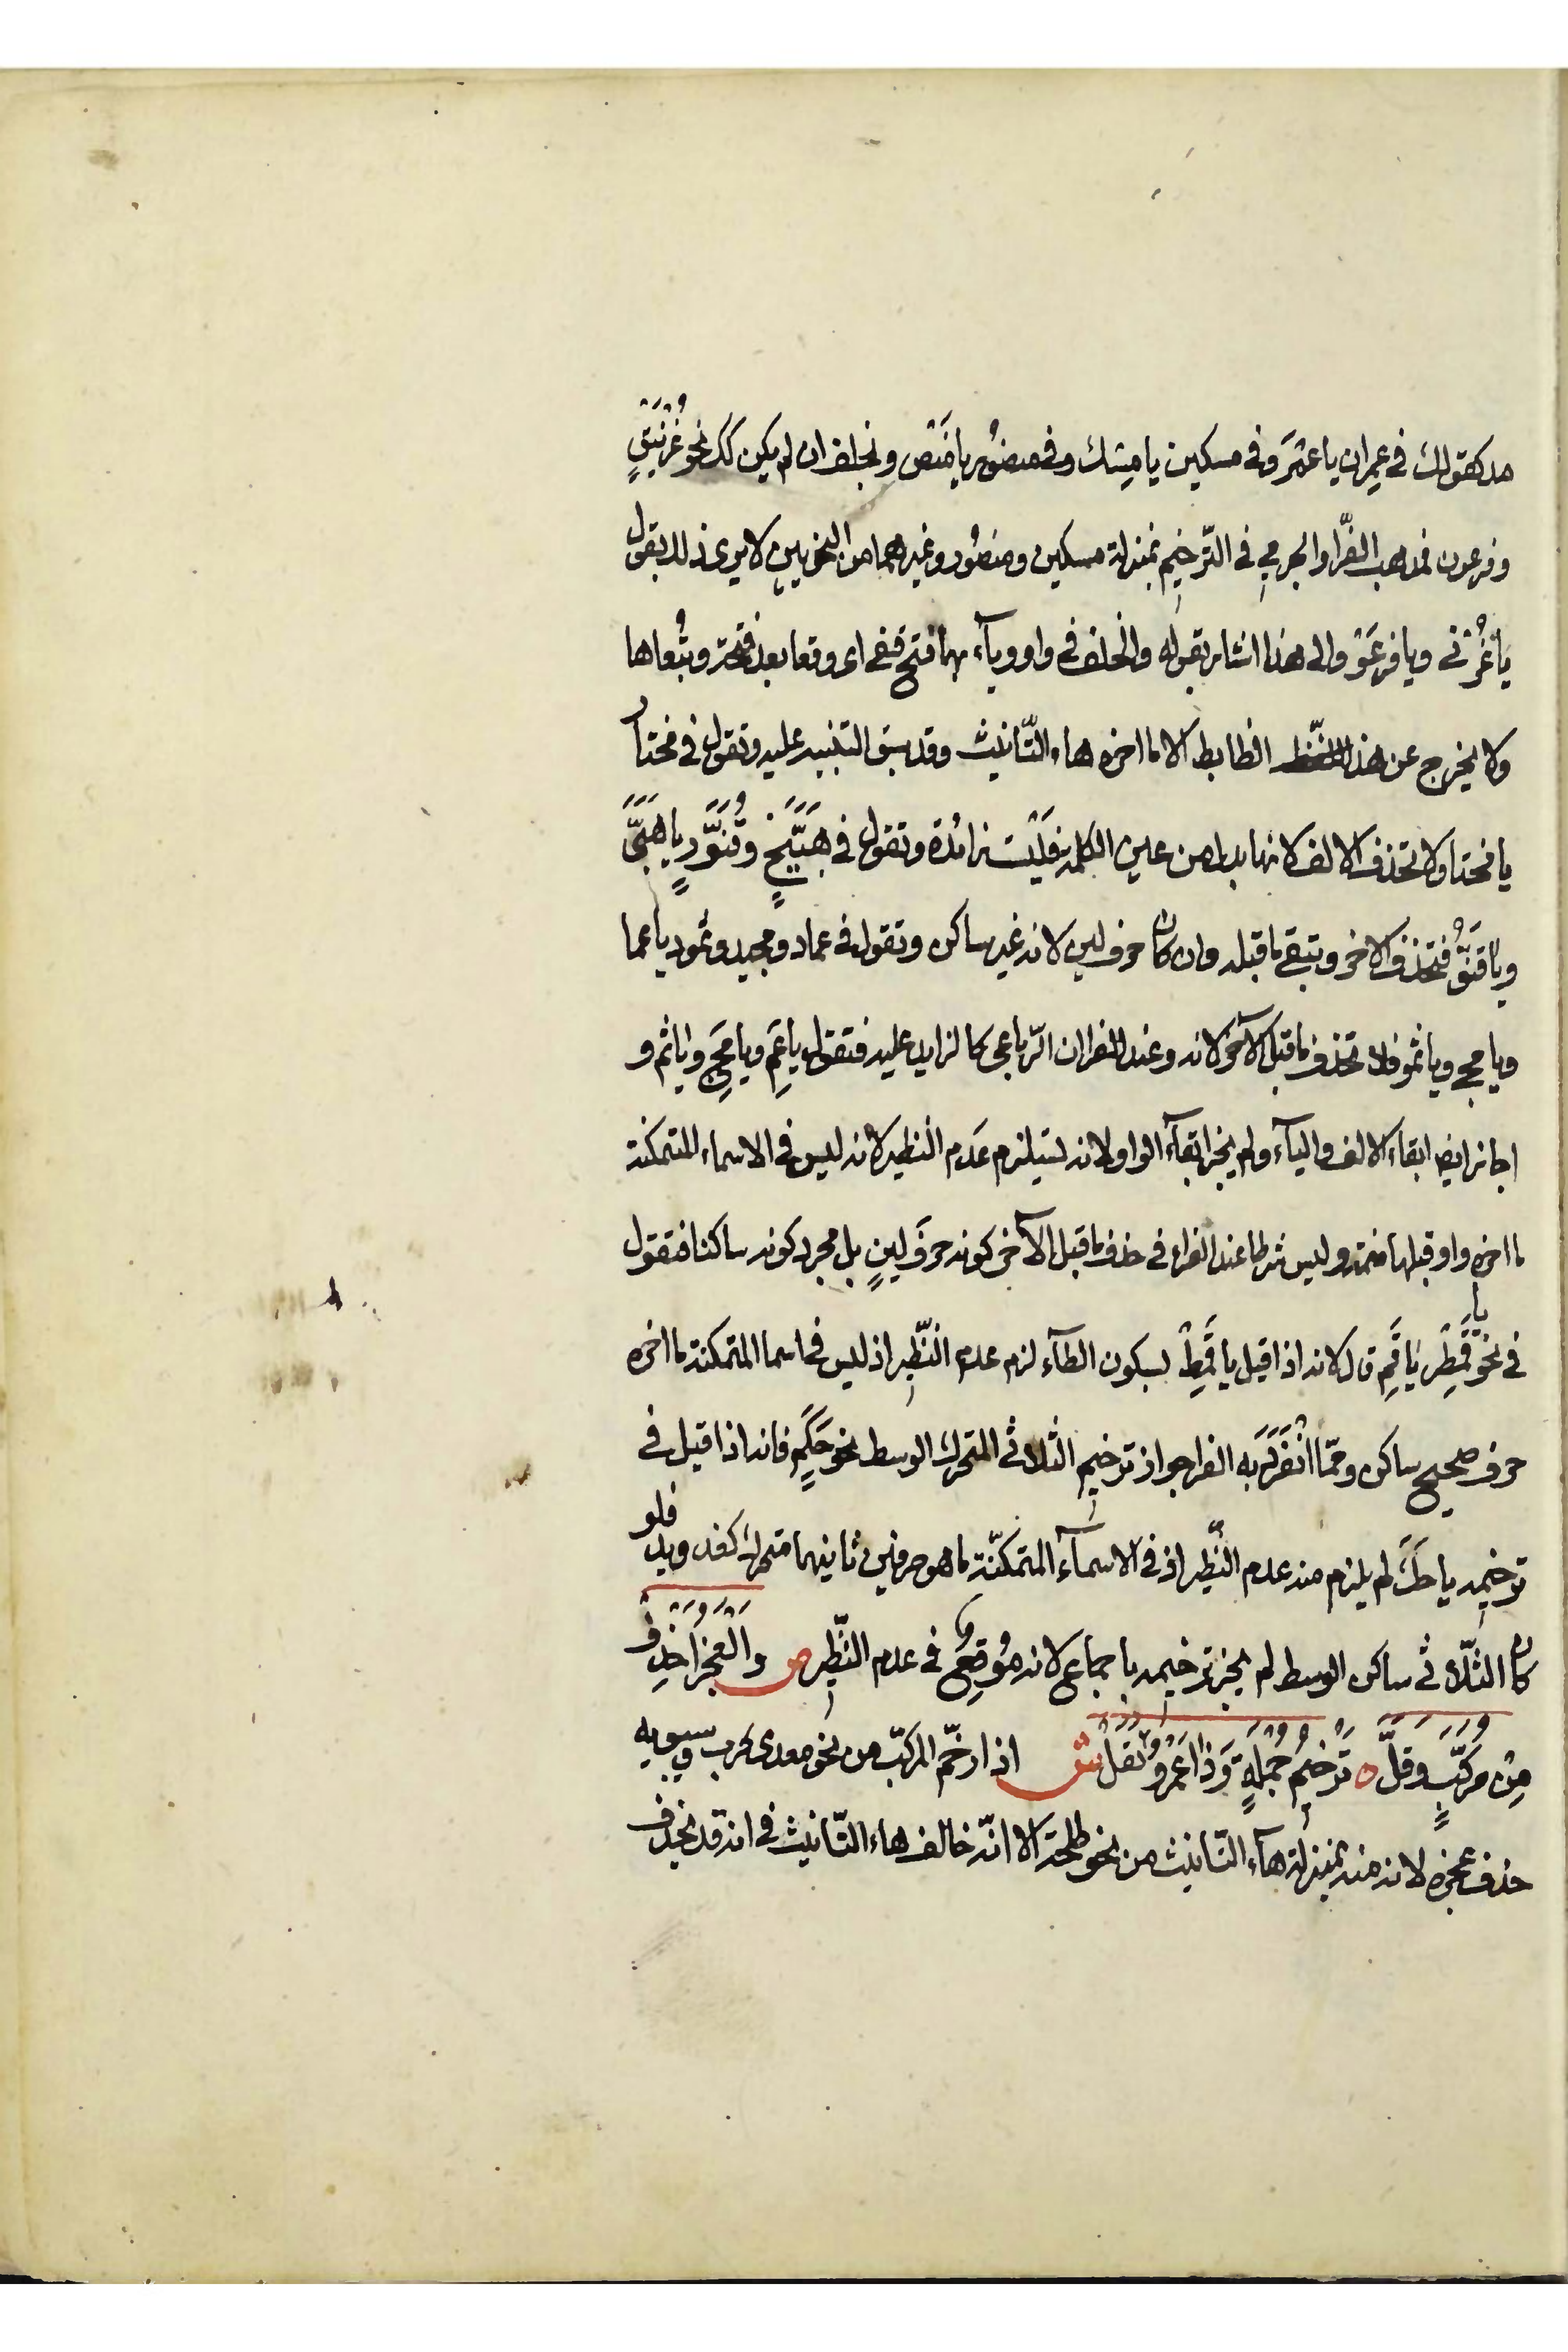 مد كقولك في عمران يا عمرَ وفي مسكين يا مسك وفي منصور يا منص ونجلف ان لم يكن كك نحو غُرْنَيْقٍ
وفرعون فمذهب الفرّا والجرمي في التّرخيم بمنزلة مسكين ومنصُور وغيرهما من النحويين لا يرى ذلك بقول
يا غُرْنَى ويا فرعَوْ والى هذا اشار بقوله والخلف في واو وياۤء بهما فتح قفى اى وقعا بعد فتحة وتبعاها
ولا يخرج عن هذا الضابط الا ما اخره هاء التّانيث وقد سبق التنبيه عليه وتقول في مختار
يا مختا ولا تحذف الالف لانها بدل من عين الكلمة فليست زائدة وتقول في هَبَيَّخٍ وقَنَوَّرٍ يا هَبَيَّ
ويا قَنَوَّ فتحذف الاخر وتبقى ما قبله وان كان حرف لين لانه غير ساكن وتقول في عماد ومجيد وثمود يا عما
ويا مجى ويا ثمو فلا تحذف ما قبل الآخر لانه وعند الفرا ان الرّباعى كالزايد عليه فتقول يا عَمِ ويا مَجِ ويا ثم و
اجاز ايض ابقاء الالف والياۤء ولم يجز ابقاۤء الواو لانه يستيلزم عَدم النظير لانه ليس في الاسماء المتمكنة
ما اخره واو قبلها ضمة وليس شرطا عند الفراء في حذف ما قبل الآخر كونه حرفَ لينٍ بل مجرد كونه ساكنا فتقول
يا
في نحو قِمَطْرٍ يَا قِمَ قال لانه اذا قيل يا قِمَطْ بسكون الطاۤء لزم عدم النّظير اذ ليس في اسما المتمكنة ما اخره
حرف صحيح ساكن وممّا انْفَرَدَ به الفرا جواز ترخيم الثلاثى المتحرك الوسط نحو حَكَمٍ فانه اذا قيل في
ترخيمه يا حكَ لم يلزم منه عدم النّظير اذ في الاسماۤء المتمكنّة ما هو حرفين ثانيهما متحرك كغد ويد فلو
كان الثّلاثى ساكن الوسط لم يجز ترخيمه باجماع لانه مُوقعٌ في عدم النّظير ص والعَجُزَ احْذِفْ
مِنْ مُركّبٍ وَقَلَّ ٥ تَرْخِيمُ جُمْلَةٍ وَذَا عَمْرٌو نَقَلْ ش اذا رخّم المركبّ من نحو معدى كرب وسيبويه
حذف عجزه لانه منه بمنزلة هاۤء التّانيث من نحو طلحة الا انّه خالف هاء التّانيث في انه قد يحذف